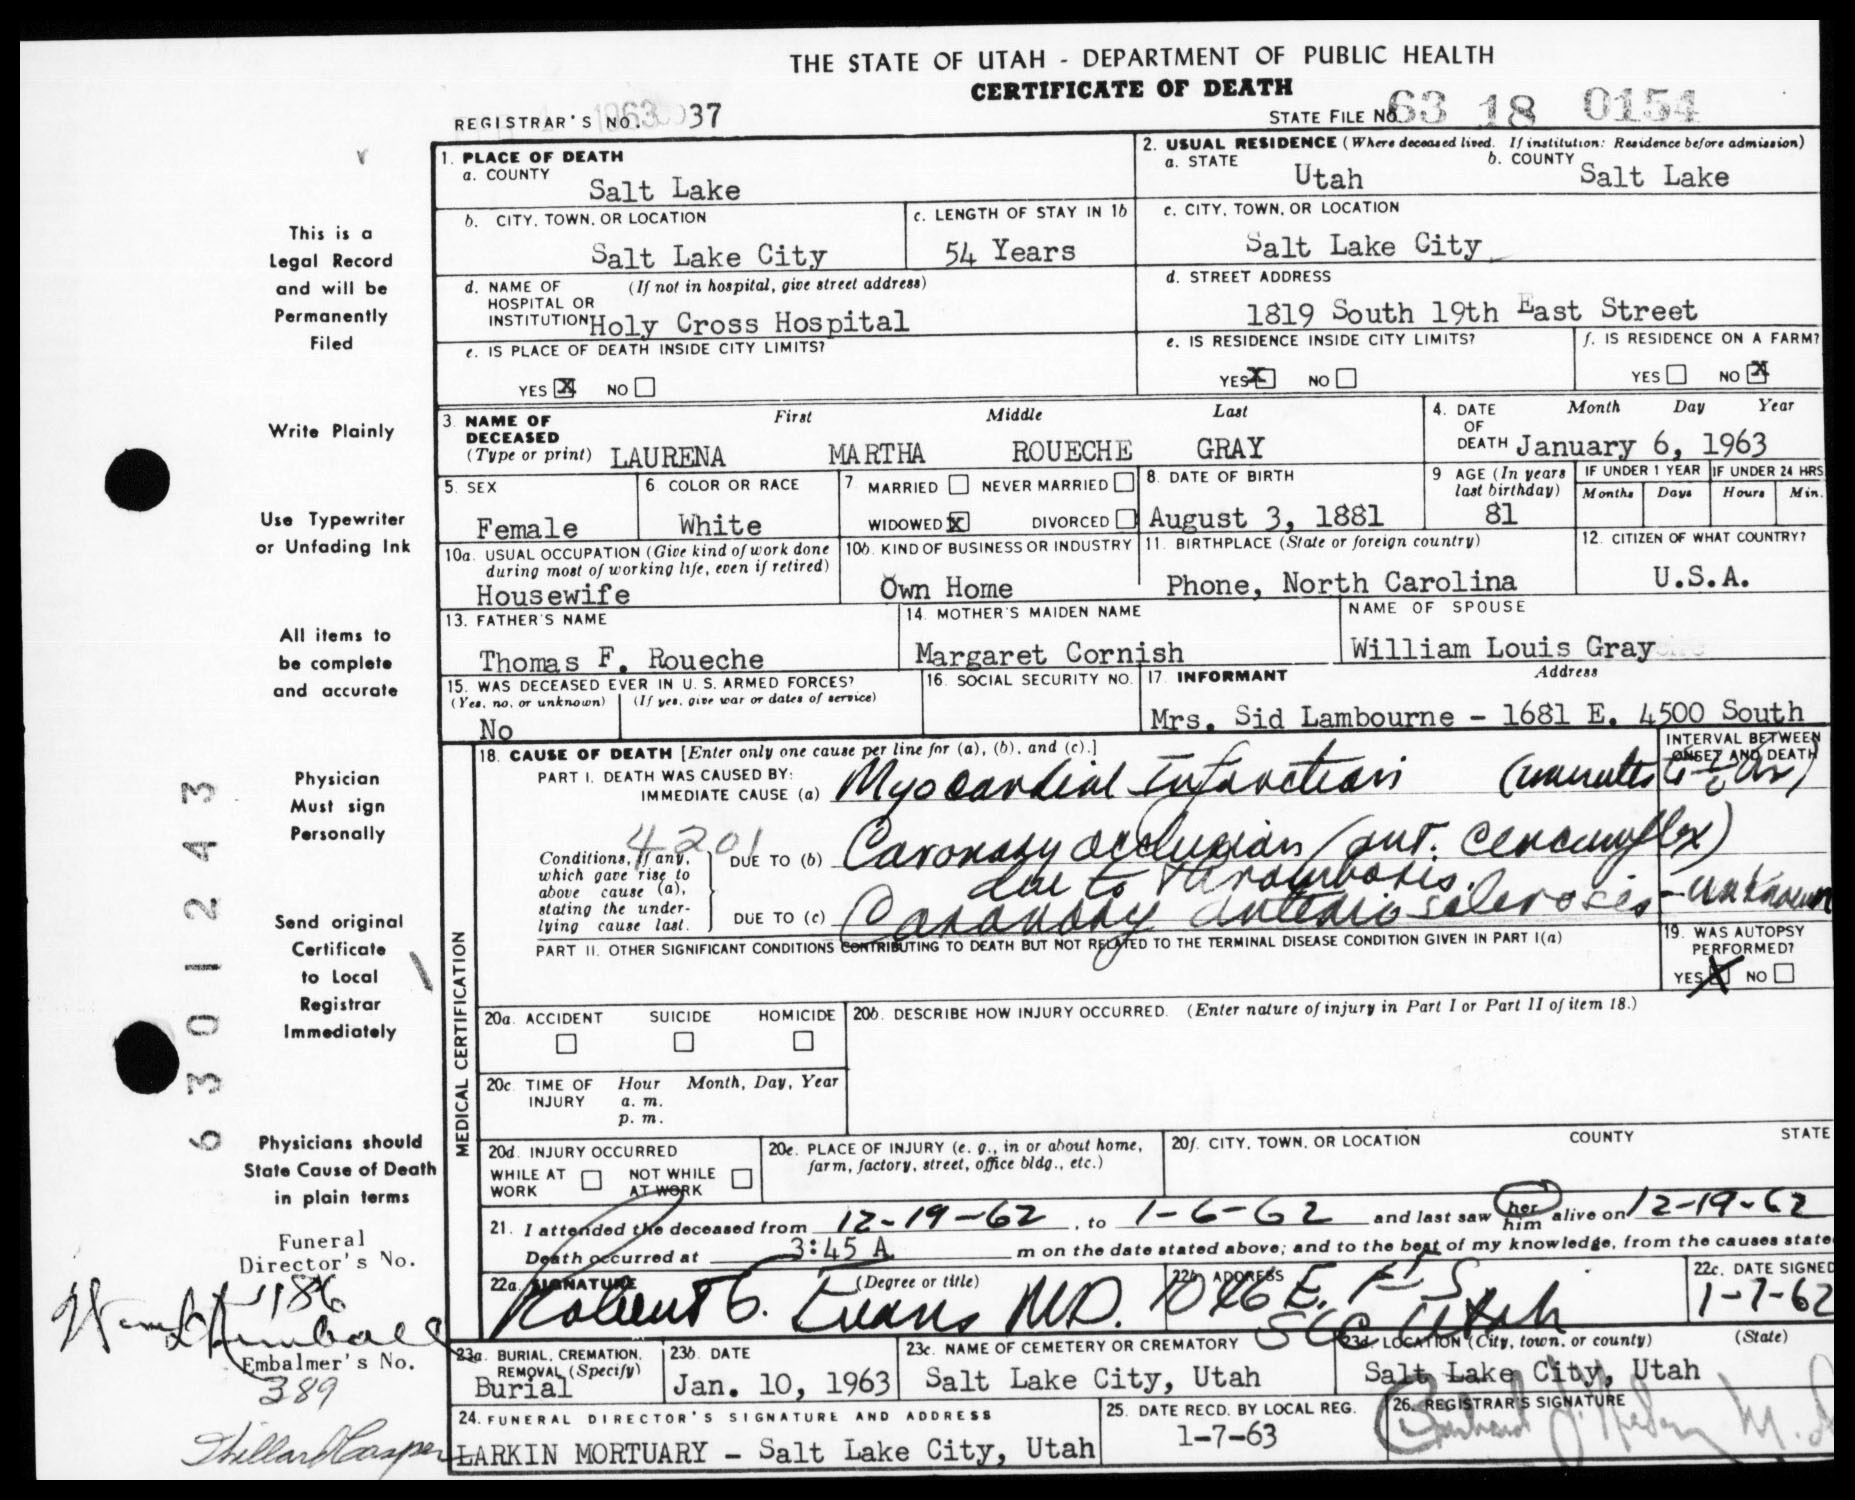 THE STATE OF UTAH - DEPARTMENT OF PUBLIC HEALTH
CERTIFICATE OF DEATH
REGISTRAR'S NO. 1963 37
STATE FILE NO. 63 18 0154
1. PLACE OF DEATH
a. COUNTY
Salt Lake
2. USUAL RESIDENCE (Where deceased lived. If institution: Residence before admission)
a. STATE Utah b. COUNTY Salt Lake
b. CITY, TOWN, OR LOCATION
Salt Lake City
c. LENGTH OF STAY IN 1b
54 Years
c. CITY, TOWN, OR LOCATION
Salt Lake City
d. NAME OF HOSPITAL OR INSTITUTION (If not in hospital, give street address)
Holy Cross Hospital
d. STREET ADDRESS
1819 South 19th East Street
e. IS PLACE OF DEATH INSIDE CITY LIMITS?
YES X NO
e. IS RESIDENCE INSIDE CITY LIMITS?
YES X NO
f. IS RESIDENCE ON A FARM?
YES NO X
3. NAME OF DECEASED (Type or print) First Middle Last
LAURENA MARTHA ROUECHE GRAY
4. DATE OF DEATH Month Day Year
January 6, 1963
5. SEX
Female
6. COLOR OR RACE
White
7. MARRIED NEVER MARRIED
WIDOWED X DIVORCED
8. DATE OF BIRTH
August 3, 1881
9 AGE (In years last birthday)
81
IF UNDER 1 YEAR IF UNDER 24 HRS
Months Days Hours Min.
10a. USUAL OCCUPATION (Give kind of work done during most of working life, even if retired)
Housewife
10b. KIND OF BUSINESS OR INDUSTRY
Own Home
11. BIRTHPLACE (State or foreign country)
Phone, North Carolina
12. CITIZEN OF WHAT COUNTRY?
U.S.A.
13. FATHER'S NAME
Thomas F. Roueche
14. MOTHER'S MAIDEN NAME
Margaret Cornish
NAME OF SPOUSE
William Louis Gray
15. WAS DECEASED EVER IN U. S. ARMED FORCES?
(Yes, no, or unknown) (If yes, give war or dates of service)
No
16. SOCIAL SECURITY NO.
17. INFORMANT Address
Mrs. Sid Lambourne - 1681 E. 4500 South
MEDICAL CERTIFICATION
18. CAUSE OF DEATH [Enter only one cause per line for (a), (b), and (c).]
INTERVAL BETWEEN ONSET AND DEATH
PART I. DEATH WAS CAUSED BY:
IMMEDIATE CAUSE (a) Myocardial Infarction (minutes to ½ hr)
4201
Conditions, if any, which gave rise to above cause (a), stating the underlying cause last.
DUE TO (b) Coronary occlusion (ant. circumflex)
due to thrombosis.
DUE TO (c) Coronary arteriosclerosis - unknown
PART II. OTHER SIGNIFICANT CONDITIONS CONTRIBUTING TO DEATH BUT NOT RELATED TO THE TERMINAL DISEASE CONDITION GIVEN IN PART I(a)
19. WAS AUTOPSY PERFORMED?
YES X NO
20a. ACCIDENT SUICIDE HOMICIDE
20b. DESCRIBE HOW INJURY OCCURRED. (Enter nature of injury in Part I or Part II of item 18.)
20c. TIME OF INJURY Hour Month, Day, Year
a. m.
p. m.
20d. INJURY OCCURRED
WHILE AT WORK NOT WHILE AT WORK
20e. PLACE OF INJURY (e. g., in or about home, farm, factory, street, office bldg., etc.)
20f. CITY, TOWN, OR LOCATION COUNTY STATE
21. I attended the deceased from 12-19-62, to 1-6-62 and last saw her him alive on 12-19-62
Death occurred at 3:45 A m on the date stated above; and to the best of my knowledge, from the causes state
22a. SIGNATURE (Degree or title)
Robert G. Evans M.D.
22b. ADDRESS
E. 1st S
SLC Utah
22c. DATE SIGNED
1-7-62
23a. BURIAL, CREMATION, REMOVAL (Specify)
Burial
23b. DATE
Jan. 10, 1963
23c. NAME OF CEMETERY OR CREMATORY
Salt Lake City, Utah
23d. LOCATION (City, town, or county) (State)
Salt Lake City, Utah
24. FUNERAL DIRECTOR'S SIGNATURE AND ADDRESS
LARKIN MORTUARY - Salt Lake City, Utah
25. DATE RECD. BY LOCAL REG.
1-7-63
26. REGISTRAR'S SIGNATURE
This is a
Legal Record
and will be
Permanently
Filed
Write Plainly
Use Typewriter
or Unfading Ink
All items to
be complete
and accurate
Physician
Must sign
Personally
Send original
Certificate
to Local
Registrar
Immediately
Physicians should
State Cause of Death
in plain terms
6301243
Funeral
Director's No.
1186
Embalmer's No.
389